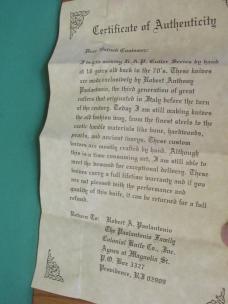 Certificate of Authenticity
Dear Valued Customer:
I began making R.A.P. Cutler Series by hand
at 18 years old back in the 70's. These knives
are made exclusively by Robert Anthony
Paolantonio, the third generation of great
cutlers that originated in Italy before the turn
of the century. Today I am still making knives
the old fashion way, from the finest steels to the
exotic handle materials like bone, hardwoods,
pearls, and ancient ivorys. These custom
knives are mostly crafted by hand. Although
this is a time consuming art, I am still able to
meet the demand for exceptional delivery. These
knives carry a full lifetime warranty and if you
are not pleased with the performance and
quality of this knife, it can be returned for a full
refund.
Return To: Robert A. Paolantonio
The Paolantonio Family
Colonial Knife Co., Inc.
Agnes at Magnolia St.
P.O. Box 3327
Providence, RI 02909